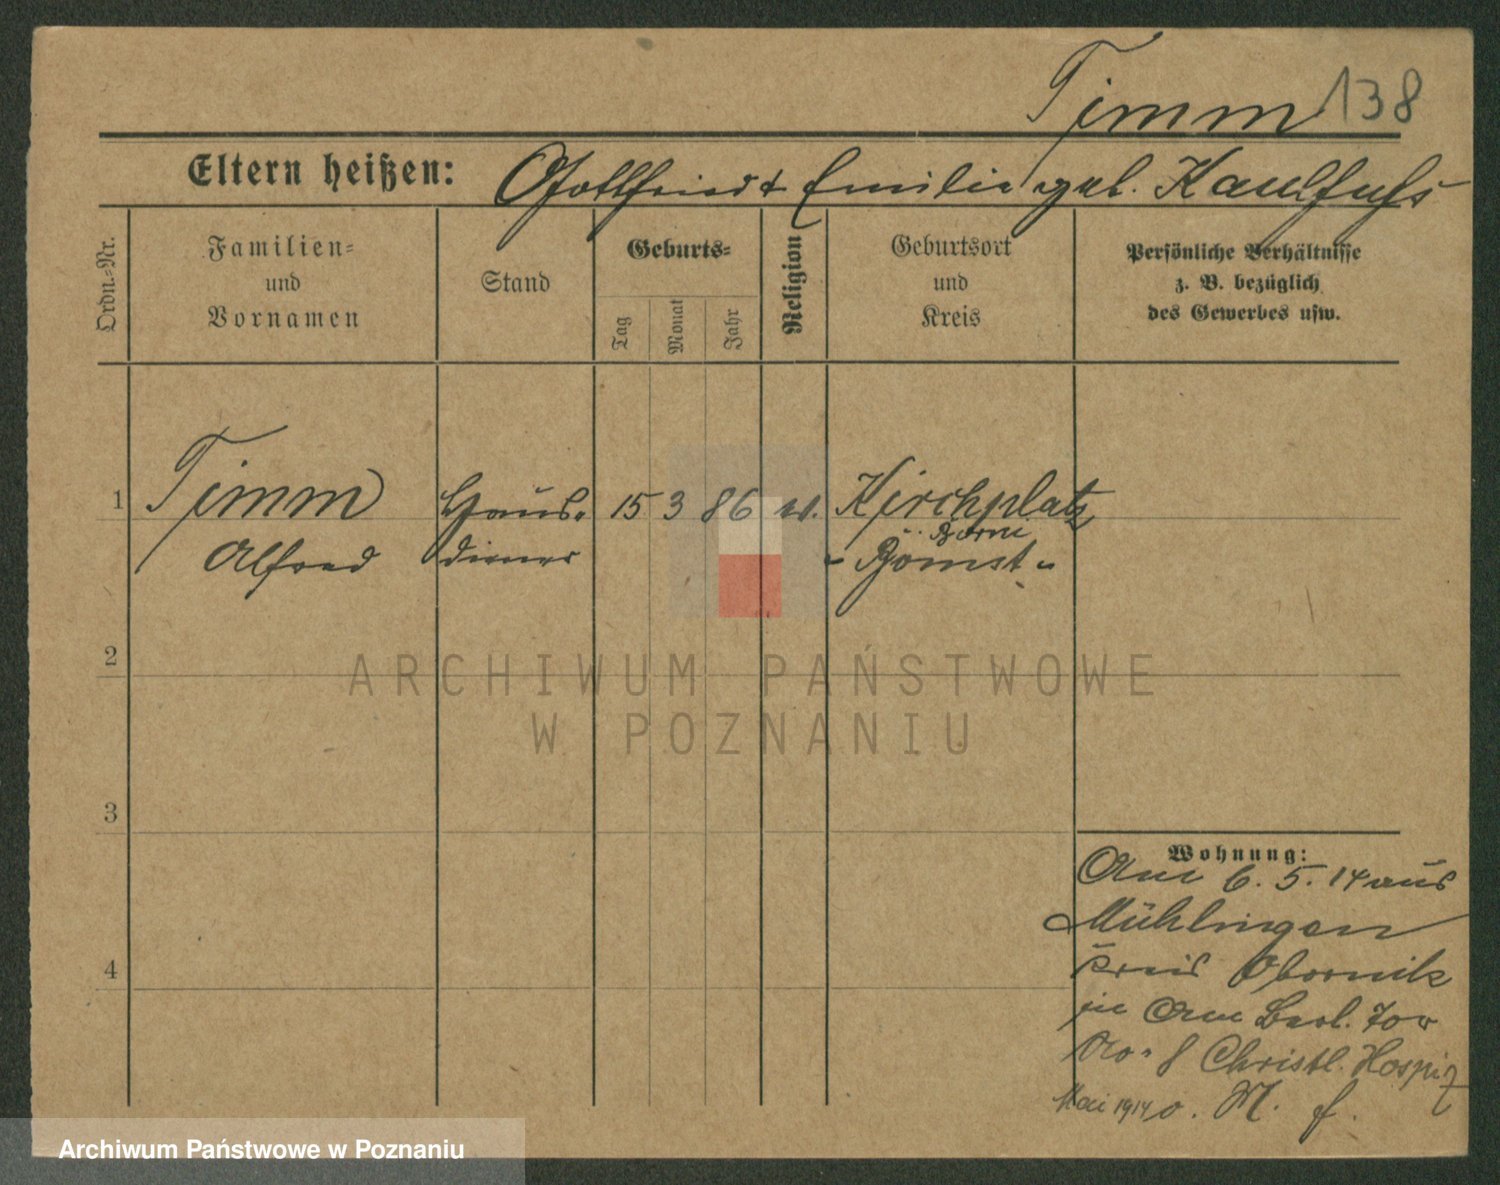 Timm 138
Eltern heißen: Gottfried & Emilie geb. Kaulfuß
Ordn.-Nr.
Familien-
und
Vornamen
Stand
Geburts-
Tag
Monat
Jahr
Religion
Geburtsort
und
Kreis
Persönliche Verhältnisse
z. B. bezüglich
des Gewerbes usw.
1 Timm Haus- 15 3 86 Kirchplatz
Borui
Alfred diener - Bomst -
2
ARCHIWUM PAŃSTWOWE
W POZNANIU
3
4
Wohnung:
Am 6. 5. 14 aus
Mühlingen
Kreis Obornik
in Am Berl. Tor
No. 8 Christl. Hospiz
Mai 1914 o. M. f.
Archiwum Państwowe w Poznaniu